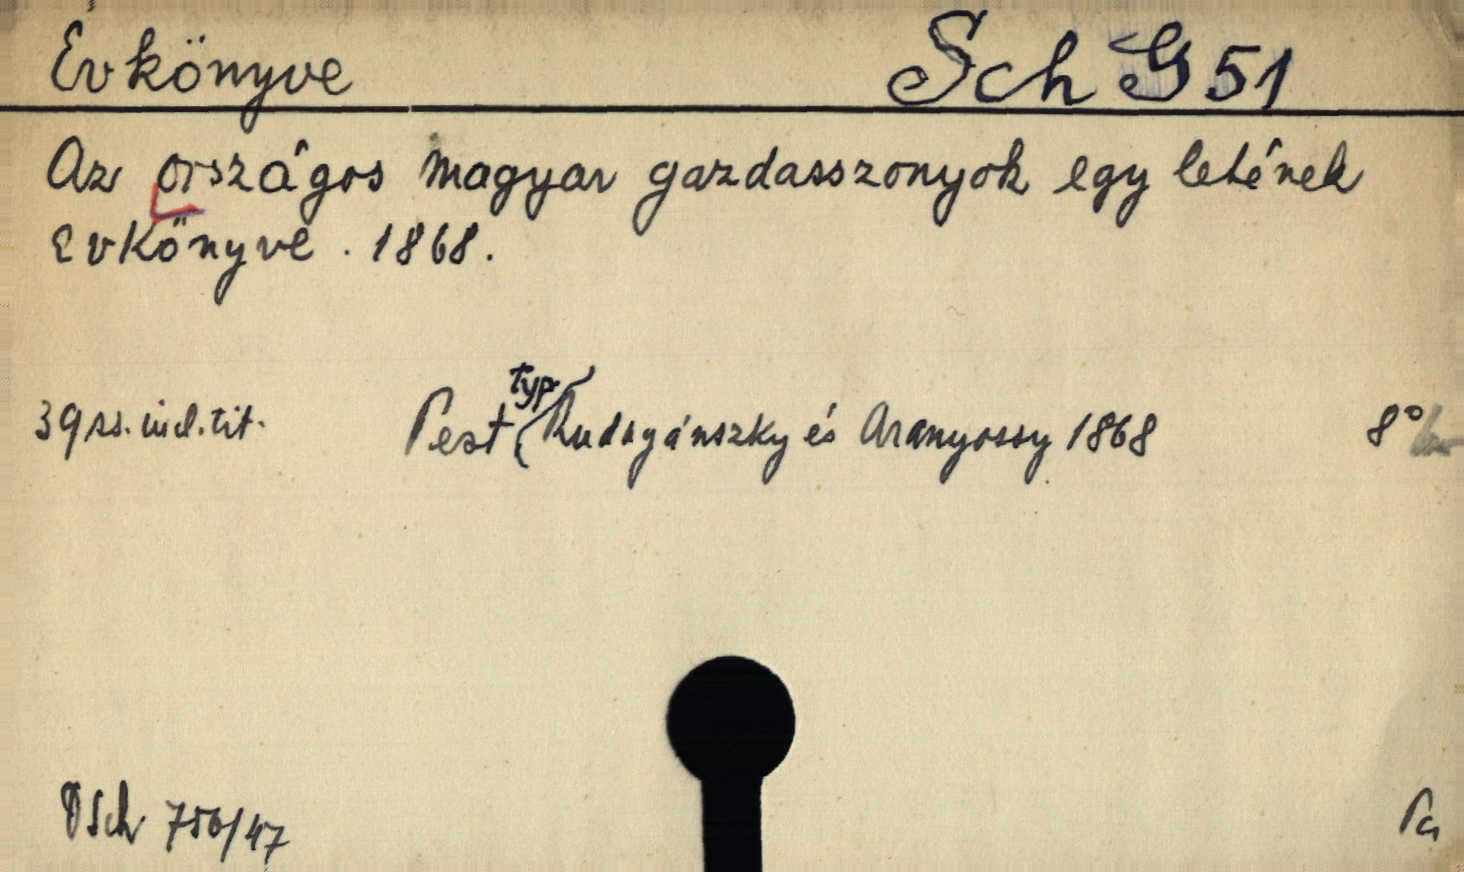 Évkönyve Sch G 51
Az országos magyar gazdasszonyok egyletének
évkönyve. 1868.
typ.
39 ss. incl. tit. Pest, Rudnyánszky és Aranyossy 1868 8°
DSch 756/47